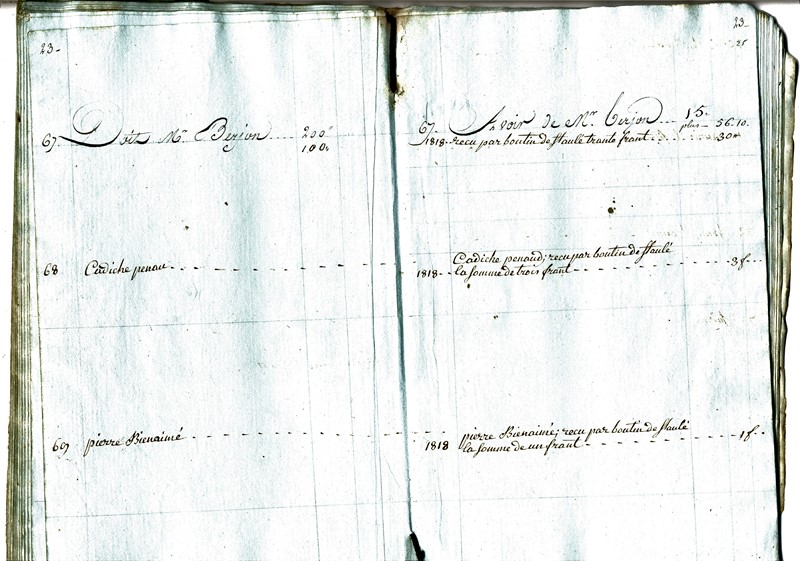 23-
67. Doit Mr Berjon 200"
100"
68 Cadiche penau
69 pierre Bienaimé
23
25
67. Avoir de Mr berjon 15.
plus 56.10.
1818. recu par boutin de Staulé trante frant 30"
Cadiche penaud; recu par boutin de Staulé
1818 la somme de trois frant 3f
pierre Bienaimé; recu par boutin de Staulé
1818 la somme de un frant 1f